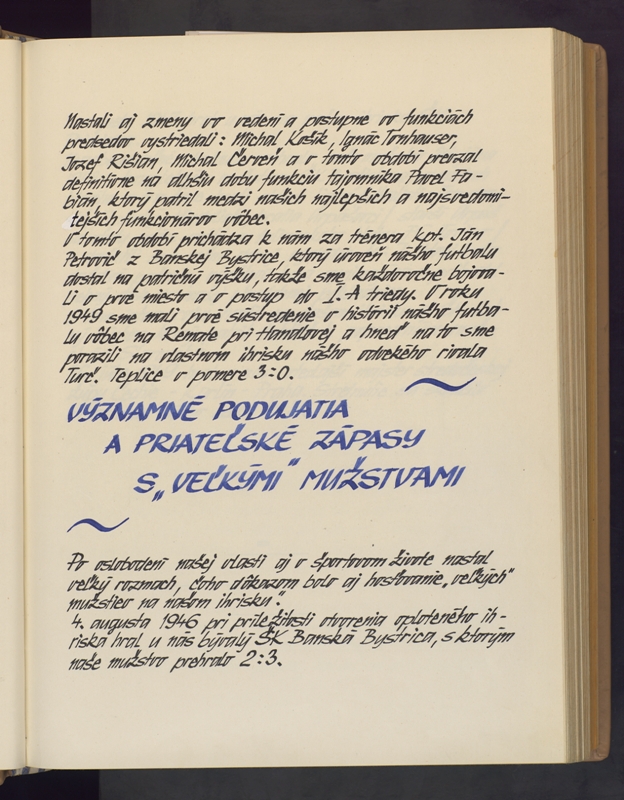 Nastali aj zmeny vo vedení a postupne vo funkciách
predsedov vystriedali: Michal Košík, Ignác Tornhauser,
Jozef Rišian, Michal Červeň a v tomto období prevzal
definitívne na dlhšiu dobu funkciu tajomníka Pavel Fa-
bián, ktorý patril medzi našich najlepších a najsvedomi-
tejších funkcionárov vôbec.
V tomto období prichádza k nám za trénera kpt. Ján
Petrovič z Banskej Bystrice, ktorý úroveň nášho futbalu
dostal na patričnú výšku, takže sme každoročne bojova-
li o prvé miesto a o postup do I. A triedy. V roku
1949 sme mali prvé sústredenie v histórií nášho futba-
lu vôbec na Remate pri Handlovej a hneď na to sme
porazili na vlastnom ihrisku nášho odvekého rivala
Turč. Teplice v pomere 3:0.
VÝZNAMNÉ PODUJATIA
A PRIATEĽSKÉ ZÁPASY
S „VEĽKÝMI" MUŽSTVAMI
Po oslobodení našej vlasti aj v športovom živote nastal
veľký rozmach, čoho dôkazom bolo aj hosťovanie „veľkých"
mužstiev na našom ihrisku".
4. augusta 1946 pri príležitosti otvorenia oploteného ih-
riska hral u nás bývalý ŠK Banská Bystrica, s ktorým
naše mužstvo prehralo 2:3.